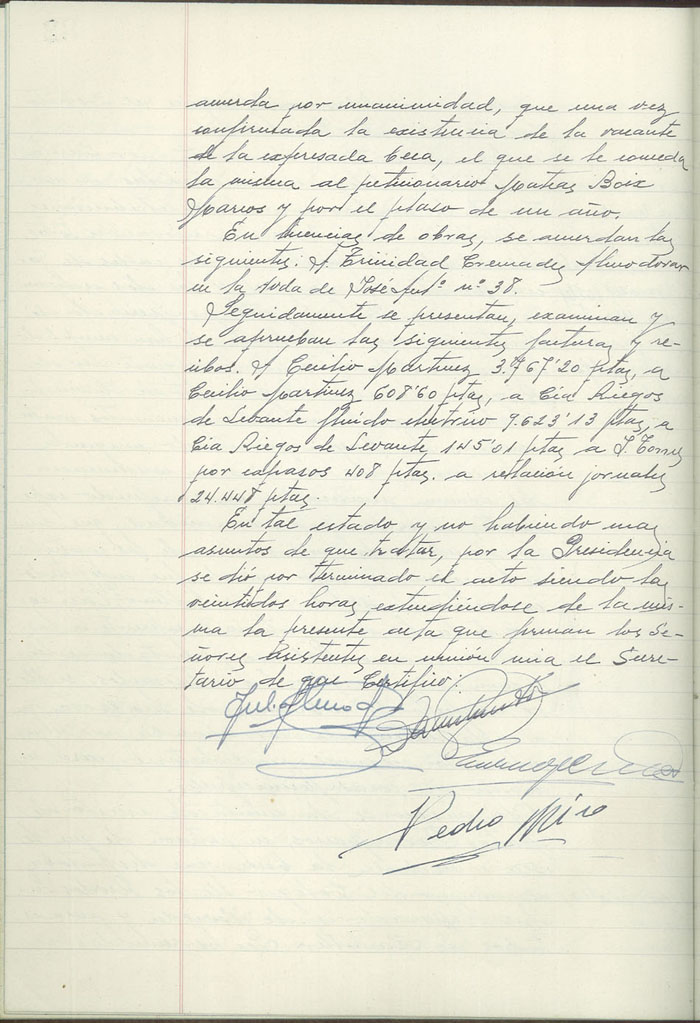 acuerda por unanimidad, que una vez
confirmada la existencia de la vacante
de la expresada beca, el que se le conceda
la misma al peticionario Matias Boix
Marcos y por el plaso de un año.
En licencias de obras, se acuerdan las
siguientes: A Trinidad Cremades Almodovar
en la Avda de José Antº nº 38.
Seguidamente se presentan, examinan y
se aprueban las siguientes facturas y re-
cibos. A Cecilio Martinez 3.767'20 ptas, a
Cecilio Martinez 608'60 ptas, a Cia Riegos
de Levante fluido electrico 9.623'13 ptas, a
Cia Riegos de Levante 145'01 ptas a J. Torres
por capasos 408 ptas. a relación jornales
24.448 ptas.
En tal estado y no habiendo mas
asuntos de que tratar, por la Presidencia
se dió por terminado el acto siendo las
veintidos horas extendiéndose de la mis-
ma la presente acta que firman los Se-
ñores Asistentes en unión mia el Secre-
tario de que Certifico.
Pedro Miro